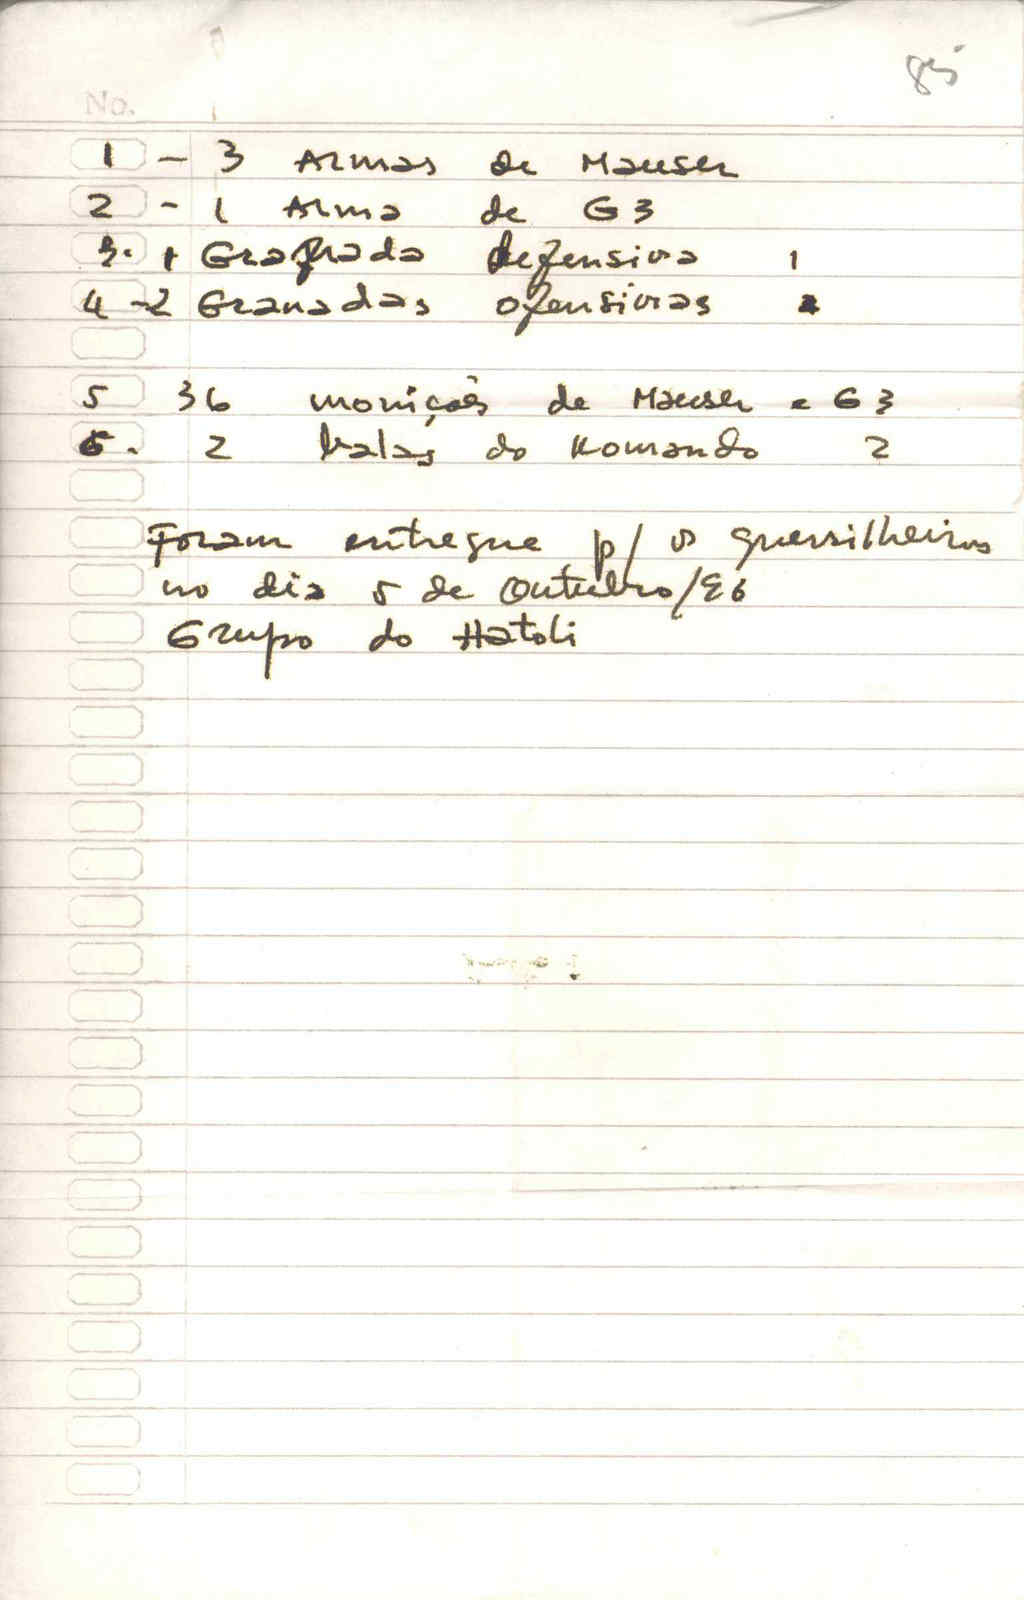 85
No.
1 - 3 Armas de Mauser
2 - 1 Arma de G3
3. 1 Granada defensiva 1
4 - 2 Granadas ofensivas 2
5 36 moniçoês de Mauser e G3
6. 2 balas do Komando 2
Foram entregue p/ os guerrilheiros
no dia 5 de Outubro/96
Grupo do Hatoli